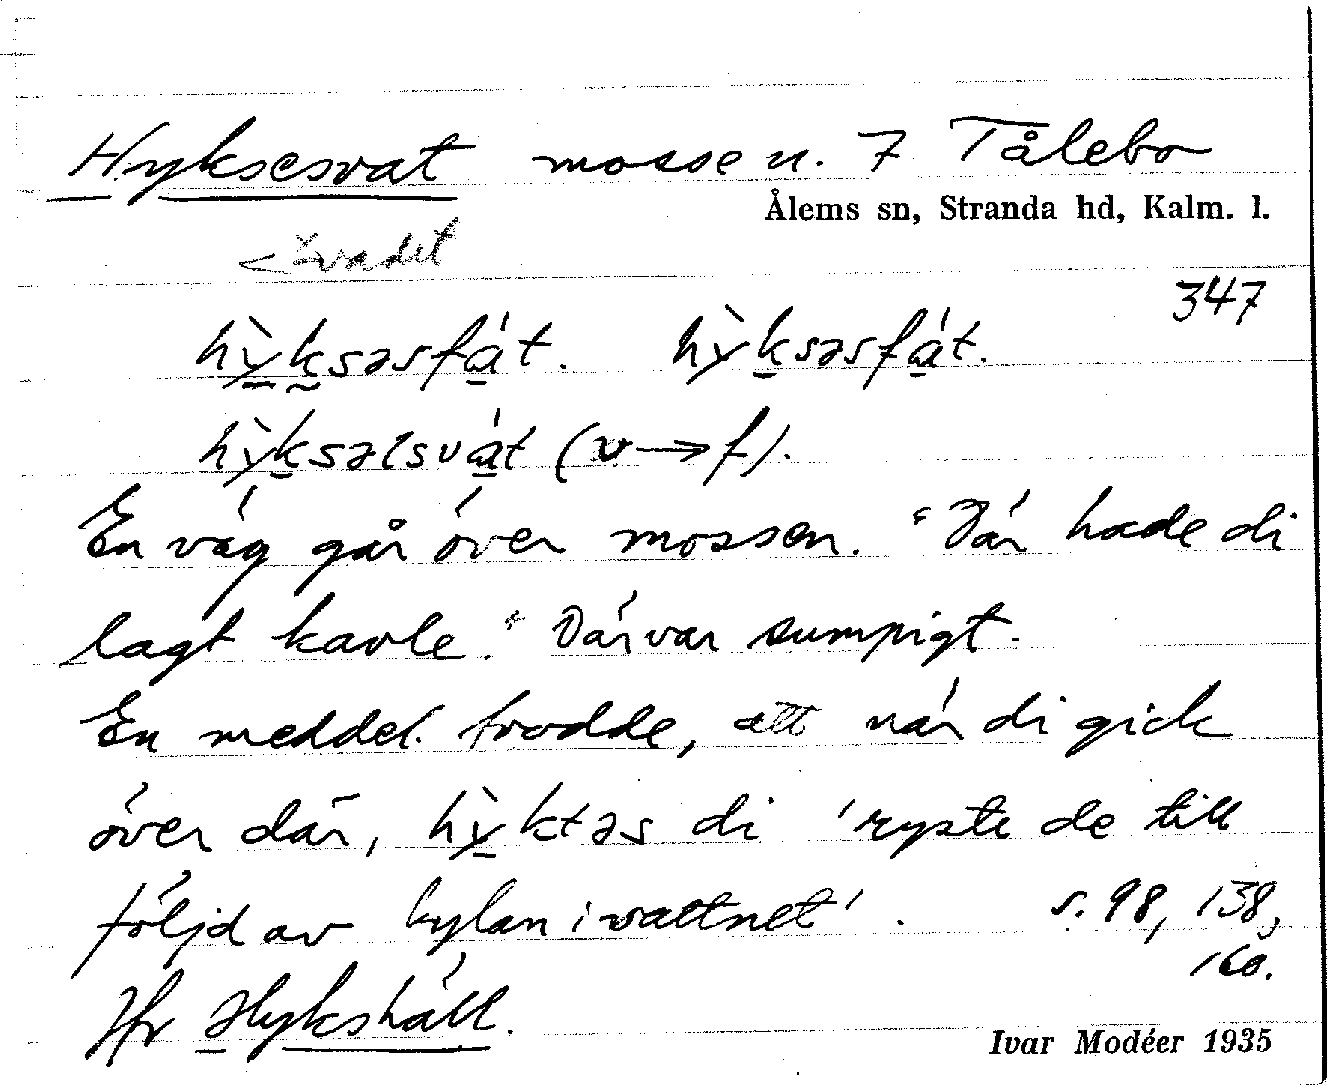 Hyksesvat mosse n. 7 Tålebo
Ålems sn, Stranda hd, Kalm. l.
< -vadet
347
hỳ̱ḵsəsfá̱t. hỳḵsəsfá̱t.
hỳḵsəlsvá̱t (v→f).
En väg går över mossen. "Där hade di
lagt kavle." Där var sumpigt.
En meddel. trodde, att när di gick
över där, hỳ̱ktəs di 'ryste de till
följd av kylan i vattnet'.
s. 98, 138,
160.
Jfr Hykshäll.
Ivar Modéer 1935